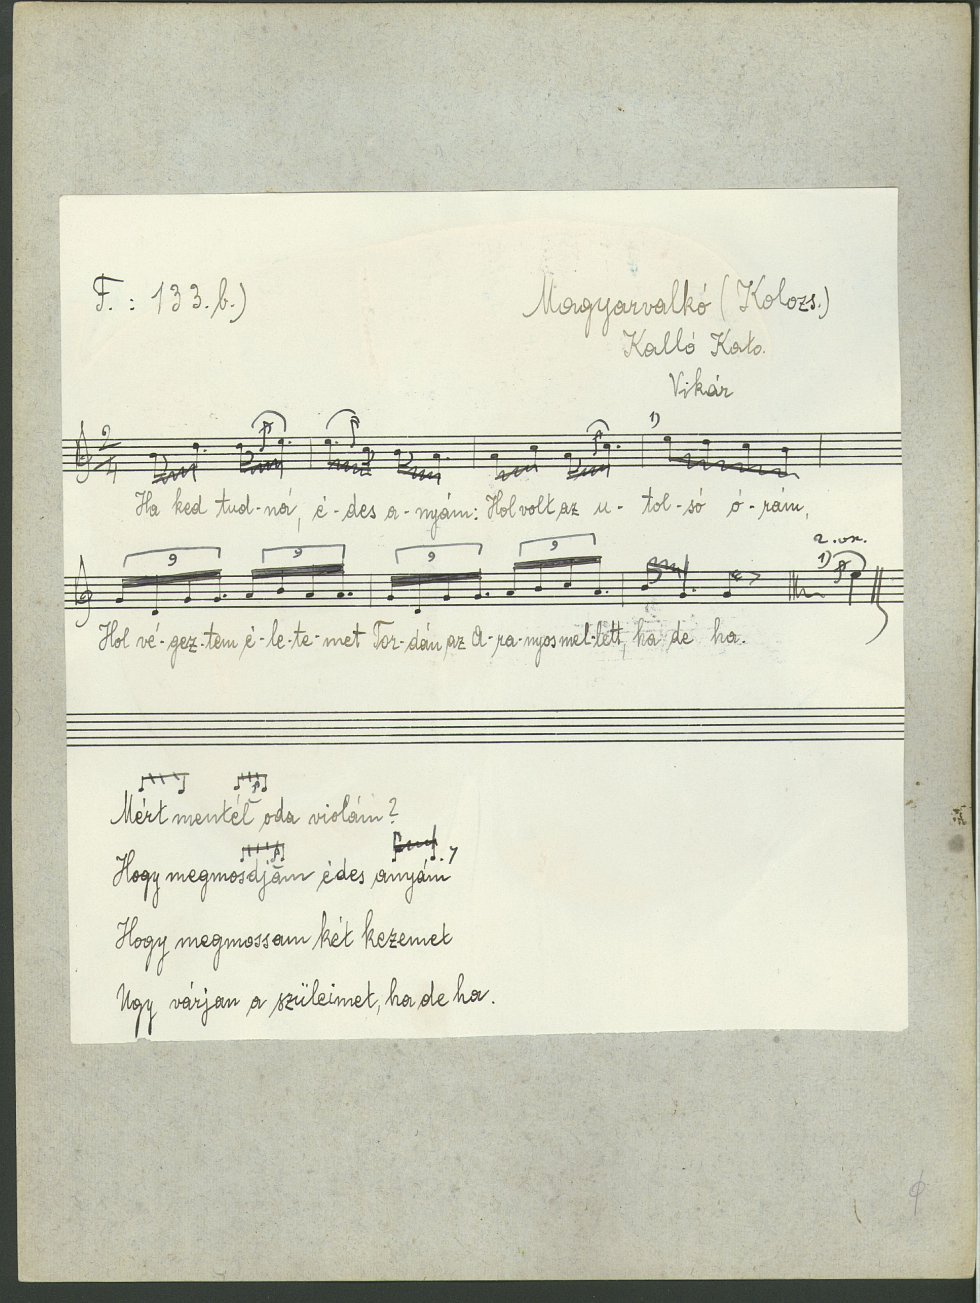 F.: 133.b.)
Magyarvalkó (Kolozs.)
Kalló Kato.
Vikár
2/4
1)
Ha ked tud-ná, é-des a-nyám: Hol volt az u-tol-só ó-rám,
2. vr.
9 9 9 9 1)
Hol vé-gez-tem é-le-te-met Tor-dán, az A-ra-nyos mel-lett, ha de ha.
Mért mentél oda violám?
Hogy megmosdjam édes anyám
Hogy megmossam két kezemet
Ugy várjan a szüleimet, ha de ha.